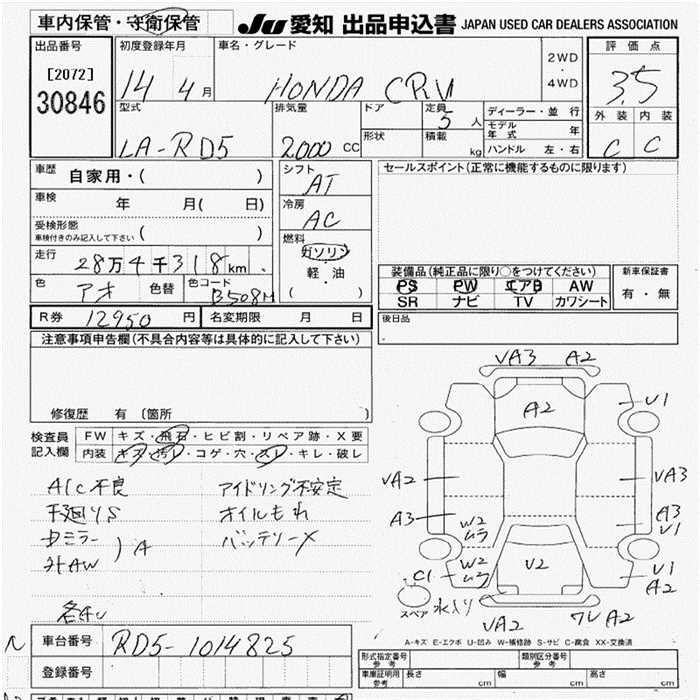 車内保管・守衛保管
JU 愛知 出品申込書 JAPAN USED CAR DEALERS ASSOCIATION
出品番号
[2072]
30846
初度登録年月
14 4月
車名・グレード
HONDA CRV
2WD
・
4WD
評価点
3.5
外装 内装
C C
型式
LA-RD5
排気量
2000 CC
ドア
形状
定員
5 人
積載
kg
ディーラー・並 行
モデル年式 年
ハンドル 左・右
車歴 自家用・( )
車検 年 月( 日)
受検形態
車検付きのみ記入して下さい ( )
走行 28万4千318km
色 アオ 色替 色コード B508M
R券 12950 円 名変期限 月 日
シフト
AT
冷房
AC
燃料
ガソリン
・
軽・油
( )
セールスポイント(正常に機能するものに限ります)
装備品(純正品に限り○をつけてください)
PS PW エアB AW
SR ナビ TV カワシート
新車保証書
有・無
後日品
注意事項申告欄(不具合内容等は具体的に記入して下さい)
修復歴 有 〔箇所 〕
検査員
記入欄
FW キズ・飛石・ヒビ割・リペア跡・X要
内装 キズ・汚レ・コゲ・穴・スレ・キレ・破レ
A/C不良 アイドリング不安定
下廻りS オイルもれ
ミラー バッテリーX
外AW
) A
各キレ
VA3 A2
A2
U1
VA2
VA3
A3
W2
ムラ
A3
U1
W2
ムラ
V2
U1
A2
C1
スペア
水入り
VA2
ワレ A2
A-キズ E-エクボ U-凹み W-補修跡 S-サビ C-腐食 XX-交換済
車台番号 RD5-1014825
登録番号
型式指定番号
参考
類別区分番号
参考
車庫証明用
参考
長さ cm 幅 cm 高さ cm